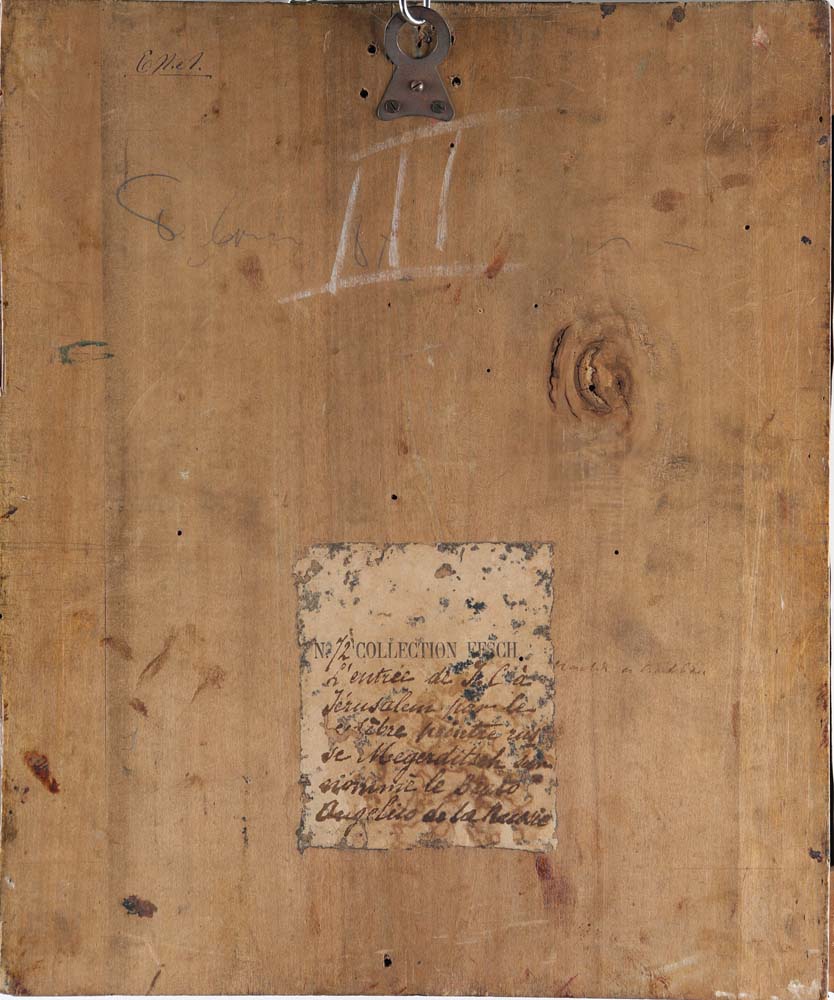 III
N. 72 COLLECTION FESCH.
L'entrée de J. C. à
Jérusalem par le
celèbre peintre rus
se Megerditsch sur
nommé le Beato
Angelico de la Russie